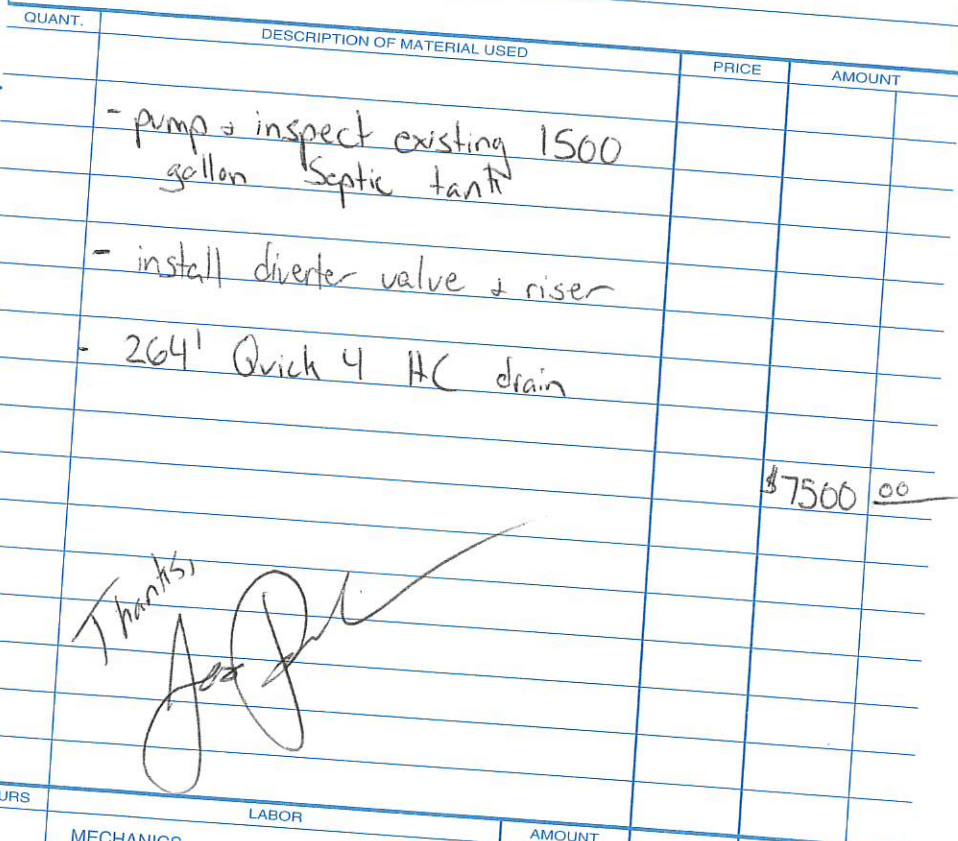 QUANT.
DESCRIPTION OF MATERIAL USED
PRICE
AMOUNT
- pump & inspect existing 1500
gallon Septic tank
- install diverter valve & riser
- 264' Quick 4 HC drain
$7500 00
Thanks,
LABOR
AMOUNT
MECHANICS